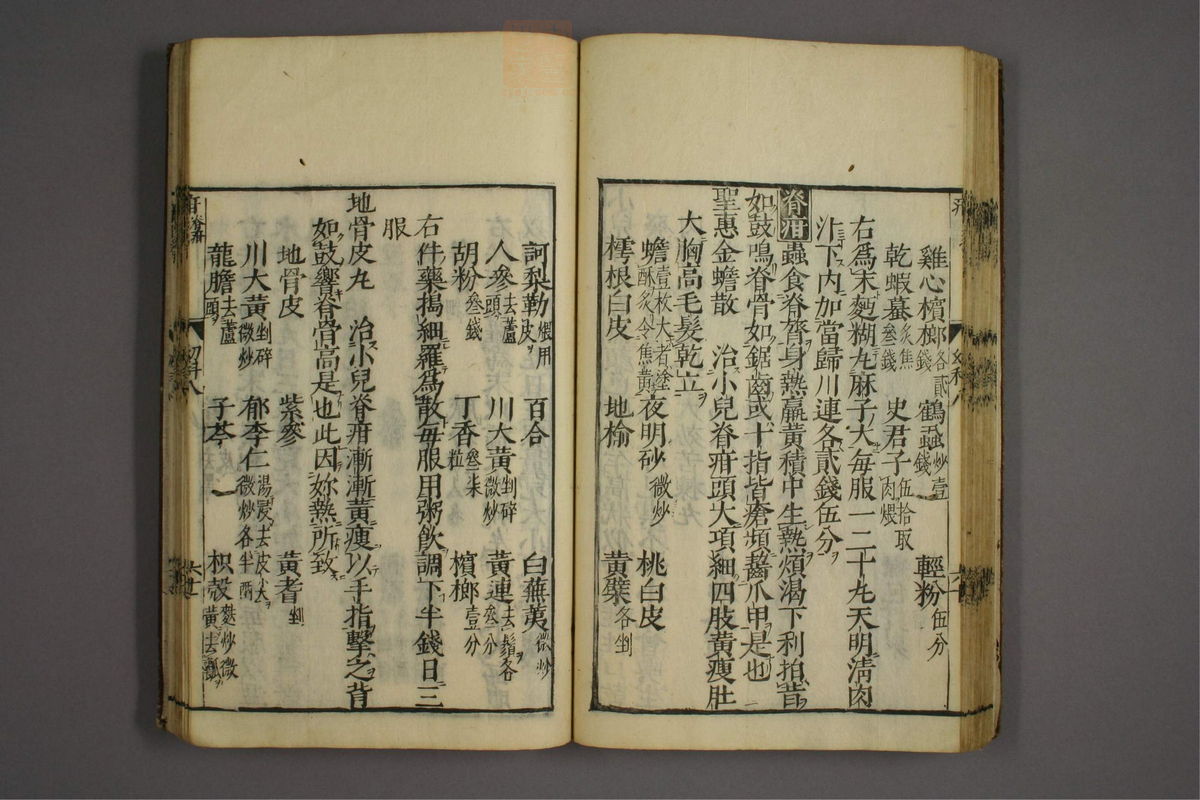 雞心檳榔各貳錢 鶴蝨炒壹錢 輕粉伍分
乾蝦蟇炙焦叁錢 史君子伍拾取肉煨
右爲末麪糊丸麻子大每服一二十丸天明淸肉
汁下内加當歸川連各貳錢伍分
脊疳蟲食脊膂身熱羸黃積中生熱煩渴下利拍背
如鼓鳴脊骨如鋸齒或十指皆瘡頻齧爪甲是也
聖惠金蟾散 治小兒脊疳頭大項細四肢黃瘦肚
大胸高毛髮乾立
蟾壹枚大者塗酥炙令焦黃 夜明砂微炒 桃白皮
樗根白皮 地榆 黃蘖各剉
訶梨勒煨用皮 百合 白蕪荑微炒
人參去蘆頭 川大黃剉碎微炒 黃連去鬚各叁分
胡粉叁錢 丁香叁柒粒 檳榔壹分
右件藥搗細羅爲散每服用粥飮調下半錢日三
服
地骨皮丸 治小兒脊疳漸漸黃瘦以手指擊之背
如鼓響脊骨高是也此因妳熱所致
地骨皮 紫參 黃耆剉
川大黃剉碎微炒 郁李仁湯浸去皮尖微炒各半兩
龍膽去蘆頭 子芩 枳殼麩炒微黃去瓤